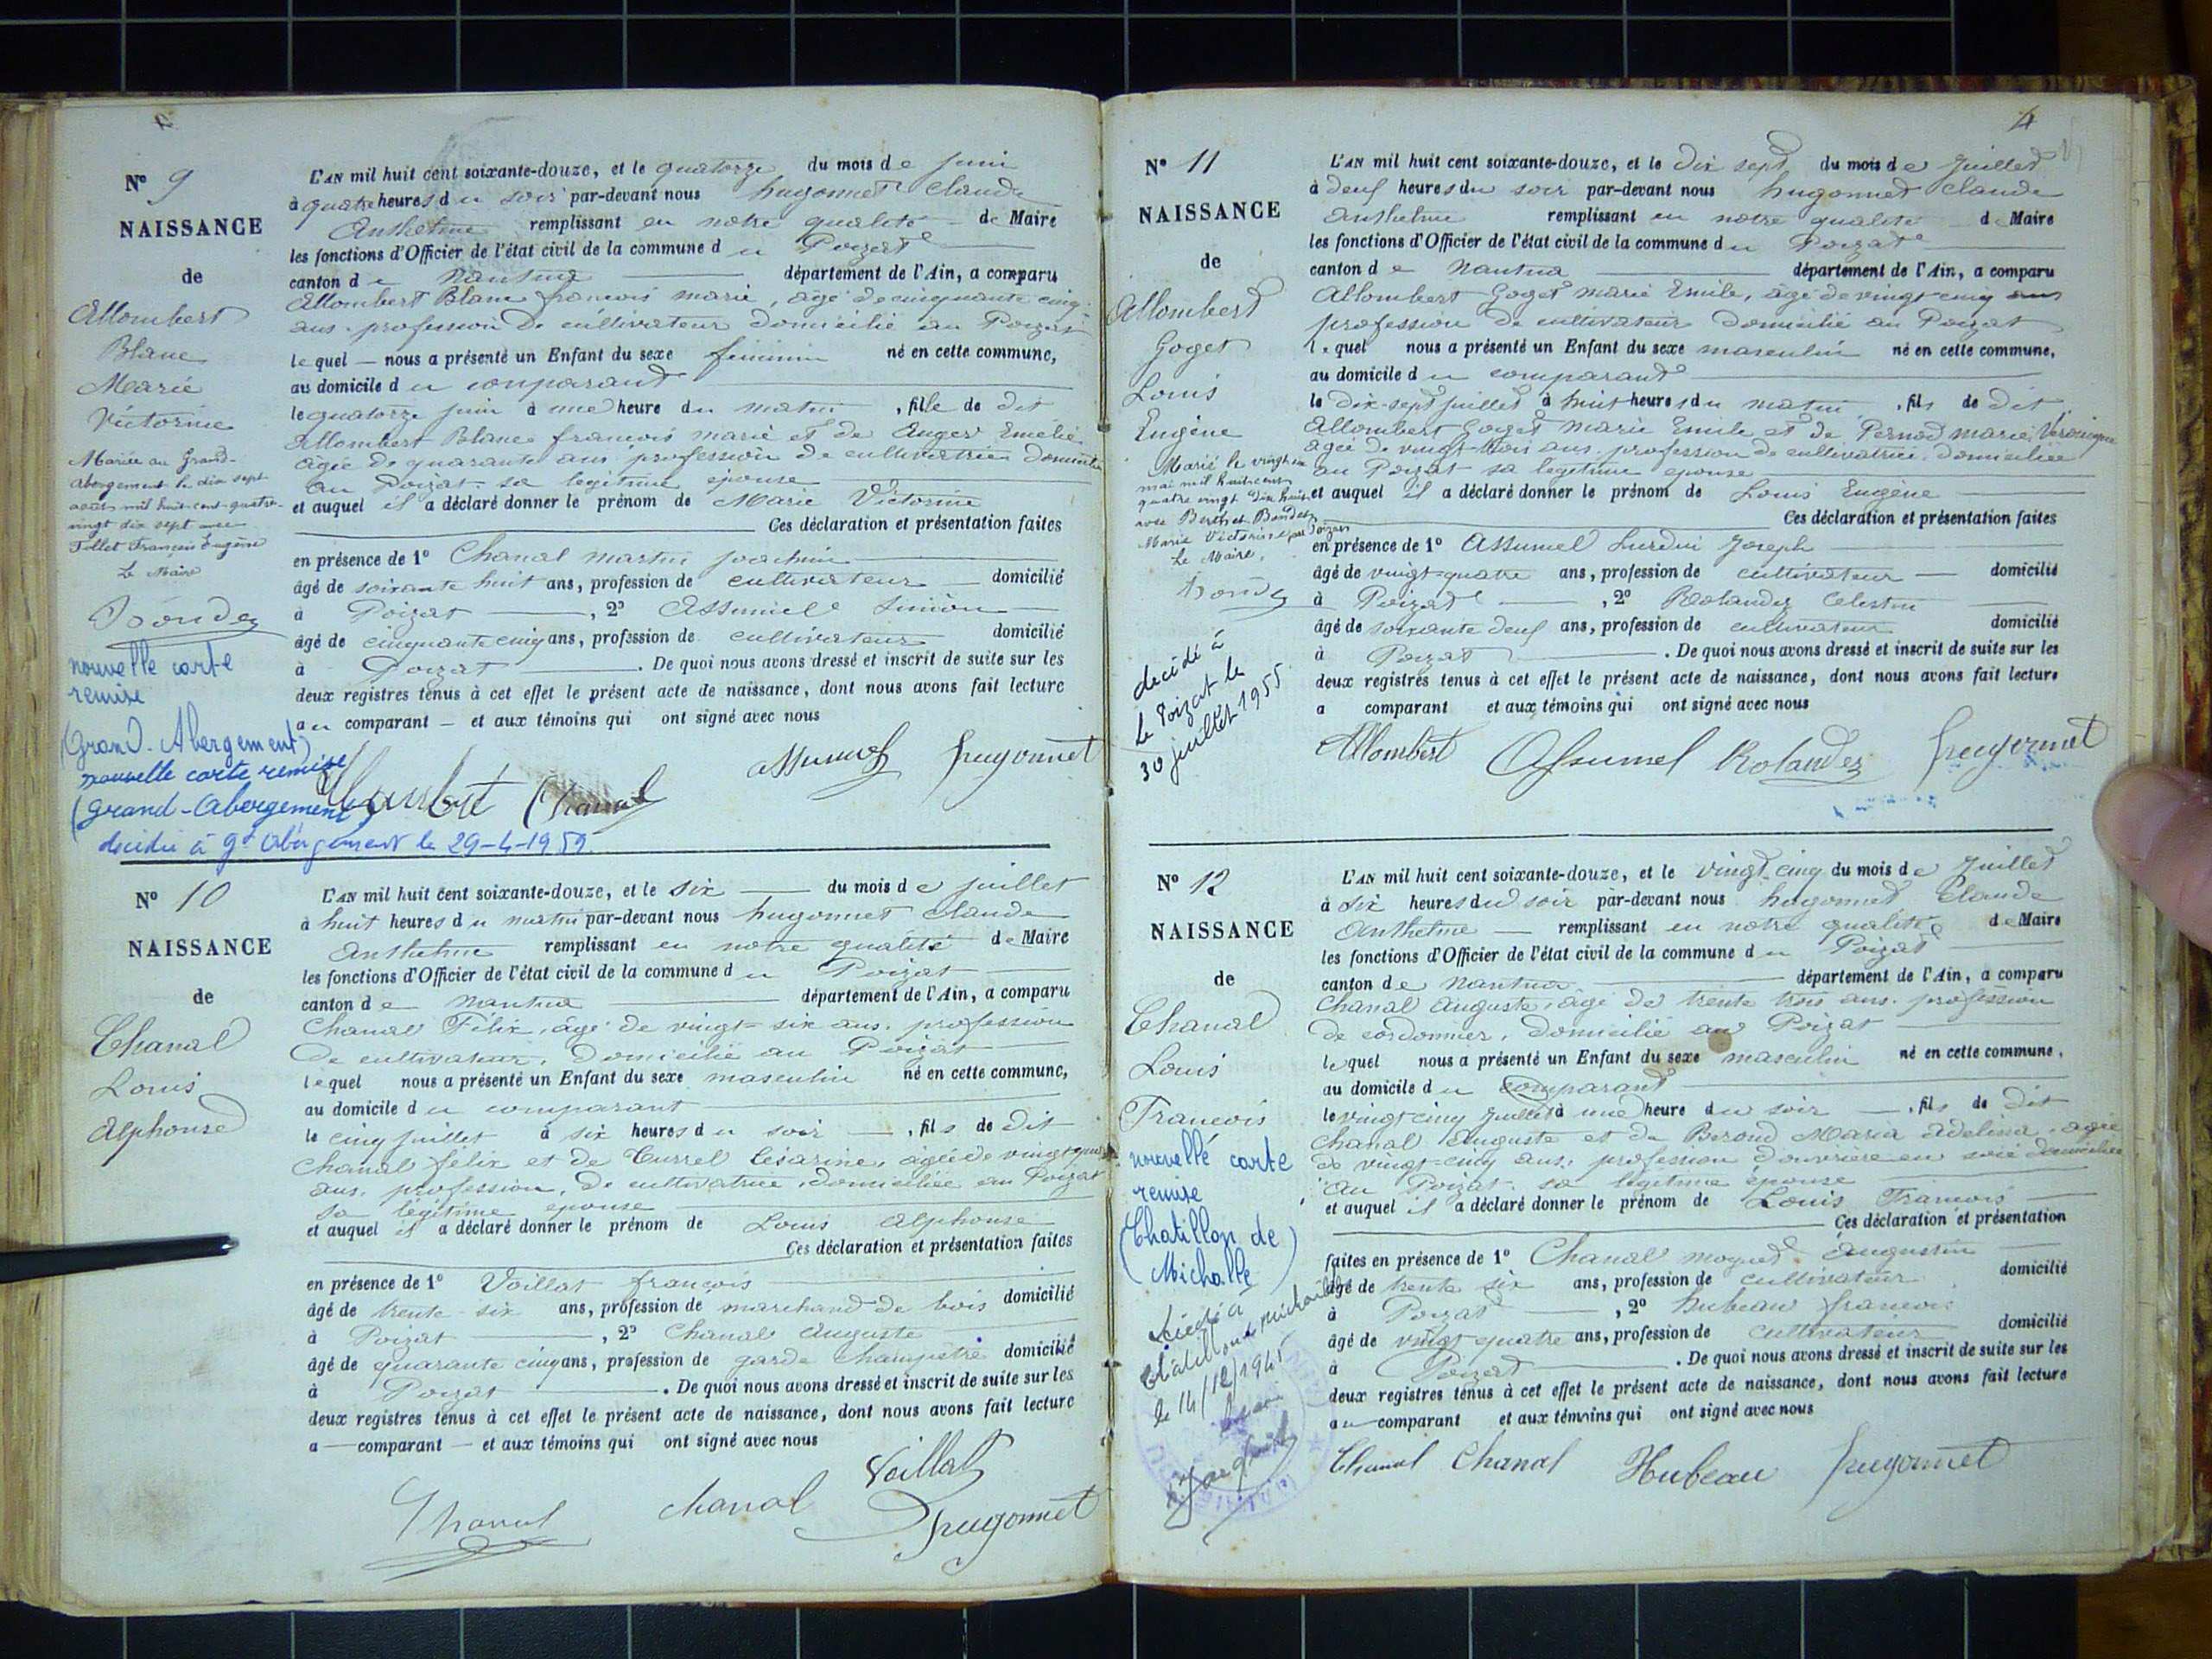 N° 9
NAISSANCE
de
Allombert
Blanc
Marie
Victorine
Mariée au Grand-
Abergement le dix sept
août mil huit-cent-quatre-
vingt dix sept avec
Tollet François Eugène
Le Maire
nouvelle carte
remise
(Grand-Abergement)
nouvelle carte remise
(Grand-Abergement)
décédée à Gd Abergement le 29-4-1959
L'AN mil huit cent soixante-douze, et le quatorze du mois de juin
à quatre heures du soir par-devant nous hugonnet Claude
Anthelme remplissant en notre qualité de Maire
les fonctions d'Officier de l'état civil de la commune du Poizat
canton de Nantua département de l'Ain, a comparu
Allombert Blanc françois marie, âgé de cinquante cinq
ans profession de cultivateur domicilié au Poizat
lequel nous a présenté un Enfant du sexe féminin né en cette commune,
au domicile du comparant
le quatorze juin à une heure du matin, fille de dit
Allombert Blanc françois marie et de Auger Emélie
âgée de quarante ans profession de cultivatrice domiciliée
au Poizat sa légitime épouse
et auquel il a déclaré donner le prénom de Marie Victorine
Ces déclaration et présentation faites
en présence de 1° Chanal martin joachim
âgé de soixante huit ans, profession de cultivateur domicilié
à Poizat, 2° Assumel Siméon
âgé de cinquante cinq ans, profession de cultivateur domicilié
à Poizat. De quoi nous avons dressé et inscrit de suite sur les
deux registres tenus à cet effet le présent acte de naissance, dont nous avons fait lecture
au comparant et aux témoins qui ont signé avec nous
Allombert Chanal Assumel hugonnet
N° 10
NAISSANCE
de
Chanal
Louis
Alphonse
L'AN mil huit cent soixante-douze, et le six du mois de juillet
à huit heures du matin par-devant nous hugonnet Claude
Anthelme remplissant en notre qualité de Maire
les fonctions d'Officier de l'état civil de la commune du Poizat
canton de Nantua département de l'Ain, a comparu
Chanal Félix, âgé de vingt-six ans. profession
de cultivateur, domicilié au Poizat
lequel nous a présenté un Enfant du sexe masculin né en cette commune,
au domicile du comparant
le cinq juillet à six heures du soir, fils de dit
Chanal félix et de Turrel Césarine, âgée de vingt
ans, profession, de cultivatrice, domiciliée au Poizat
sa légitime épouse
et auquel il a déclaré donner le prénom de Louis Alphonse
Ces déclaration et présentation faites
en présence de 1° Voillat françois
âgé de trente-six ans, profession de marchand de bois domicilié
à Poizat, 2° Chanal Auguste
âgé de quarante cinq ans, profession de garde champêtre domicilié
à Poizat. De quoi nous avons dressé et inscrit de suite sur les
deux registres tenus à cet effet le présent acte de naissance, dont nous avons fait lecture
a comparant et aux témoins qui ont signé avec nous
Chanal chanal Voillat hugonnet
4
N° 11
NAISSANCE
de
Allombert
Goget
Louis
Eugène
Marié le vingt
mai mil huit cent
quatre vingt dix huit
avec Berthet Bondet
Marie Victorine au Poizat
Le Maire,
décédé à
Le Poizat le
30 juillet 1955
L'AN mil huit cent soixante-douze, et le dix sept du mois de juillet
à deux heures du soir par-devant nous hugonnet Claude
Anthelme remplissant en notre qualité de Maire
les fonctions d'Officier de l'état civil de la commune du Poizat
canton de Nantua département de l'Ain, a comparu
Allombert Goget marie Emile, âgé de vingt-cinq ans
profession de cultivateur domicilié au Poizat
lequel nous a présenté un Enfant du sexe masculin né en cette commune,
au domicile du comparant
le dix-sept juillet à huit heures du matin, fils de dit
Allombert Goget marie Emile et de Pernod marie Véronique
âgée de vingt-trois ans. profession de cultivatrice. domiciliée
au Poizat sa légitime épouse
et auquel il a déclaré donner le prénom de Louis Eugène
Ces déclaration et présentation faites
en présence de 1° Assumel Lurdin Joseph
âgé de vingt-quatre ans, profession de cultivateur domicilié
à Poizat, 2° Rolandez Célestin
âgé de soixante deux ans, profession de cultivateur domicilié
à Poizat. De quoi nous avons dressé et inscrit de suite sur les
deux registres tenus à cet effet le présent acte de naissance, dont nous avons fait lecture
a comparant et aux témoins qui ont signé avec nous
Allombert Assumel Rolandez hugonnet
N° 12
NAISSANCE
de
Chanal
Louis
François
nouvelle carte
remise
(Chatillon de
Michaille)
décédé à
Châtillon de Michaille
le 14/12/1945
L'AN mil huit cent soixante-douze, et le vingt-cinq du mois de juillet
à six heures du soir par-devant nous hugonnet Claude
Anthelme remplissant en notre qualité de Maire
les fonctions d'Officier de l'état civil de la commune du Poizat
canton de Nantua département de l'Ain, a comparu
Chanal Auguste, âgé de trente trois ans. profession
de cordonnier, domicilié au Poizat
lequel nous a présenté un Enfant du sexe masculin né en cette commune,
au domicile du comparant
le vingt-cinq juillet à une heure du soir, fils de dit
Chanal Auguste et de Berond Maria Adelina, âgée
de vingt-cinq ans, profession d'ouvrière en soie domiciliée
au Poizat. sa légitime épouse
et auquel il a déclaré donner le prénom de Louis François
Ces déclaration et présentation
faites en présence de 1° Chanal moguet Augustin
âgé de trente six ans, profession de cultivateur domicilié
à Poizat, 2° hubeau françois
âgé de vingt quatre ans, profession de cultivateur domicilié
à Poizat. De quoi nous avons dressé et inscrit de suite sur les
deux registres tenus à cet effet le présent acte de naissance, dont nous avons fait lecture
au comparant et aux témoins qui ont signé avec nous
Chanal Chanal Hubeau hugonnet